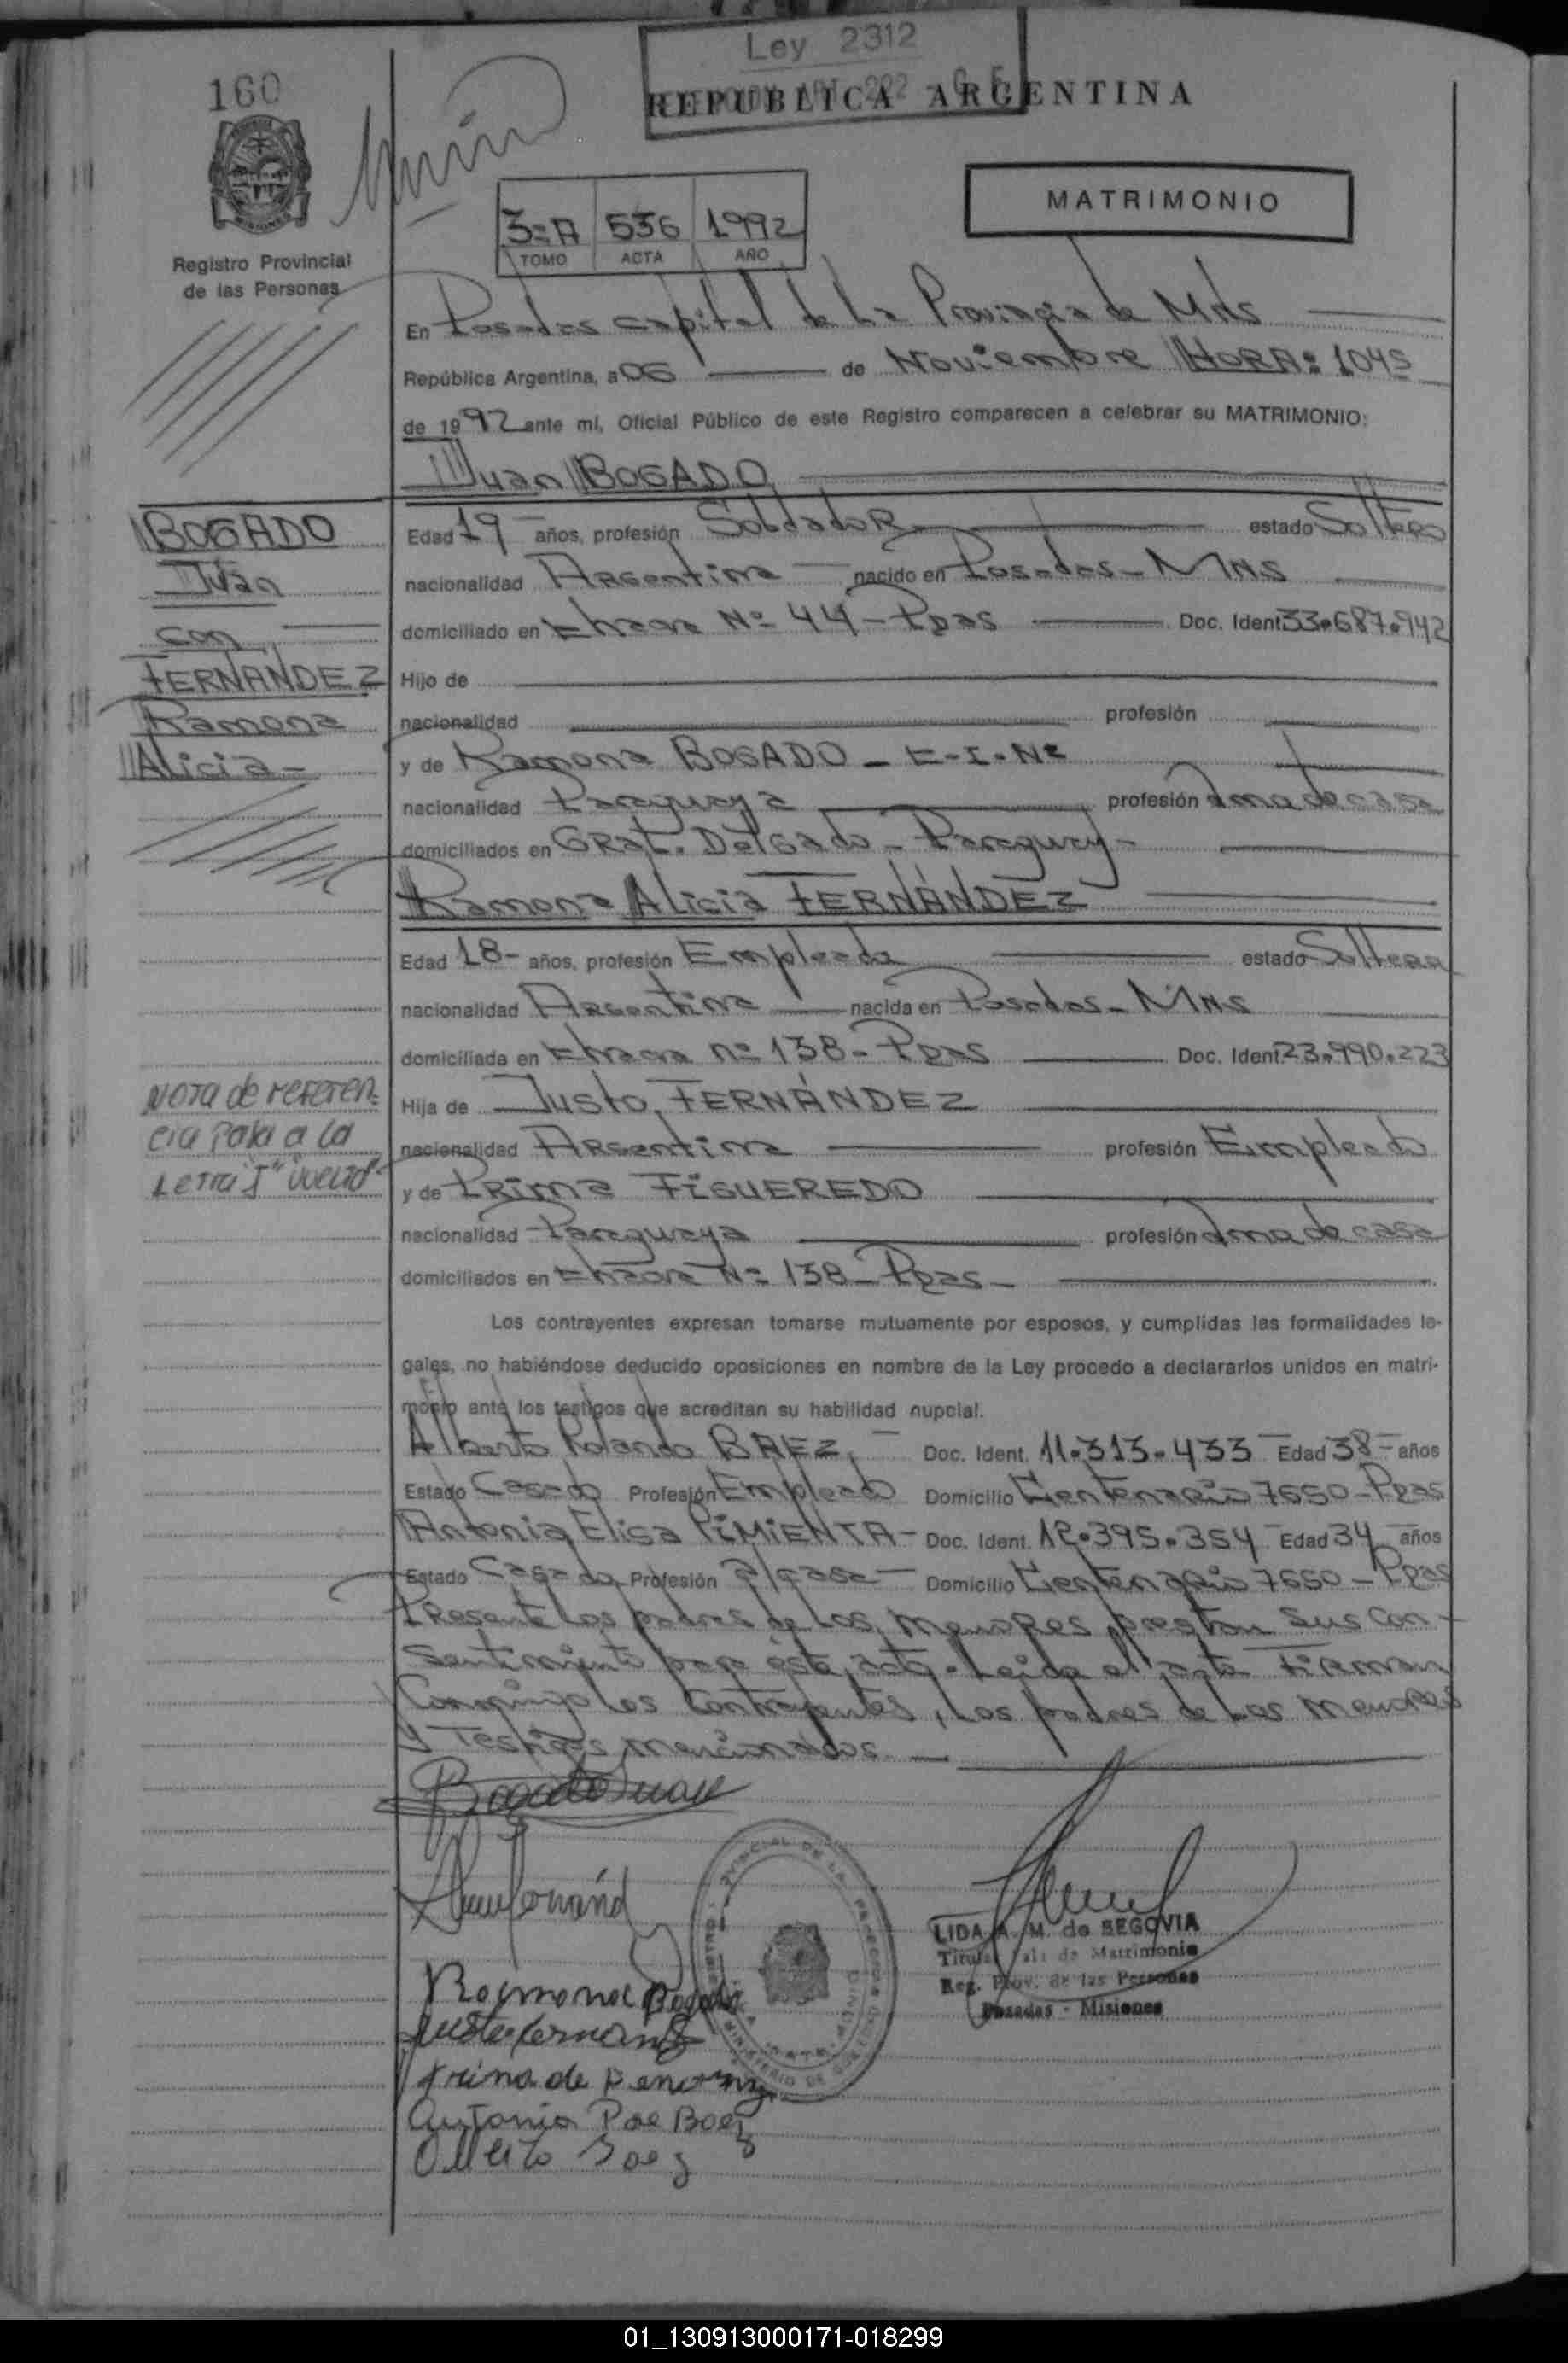 160
Ley 2312
REPUBLICA ARGENTINA
MATRIMONIO
3=A 536 1992
TOMO ACTA AÑO
Registro Provincial
de las Personas
En Posadas capital de La Provincia de Mns
República Argentina, a 06 de Noviembre HORA: 1045
de 1992 ante mí, Oficial Público de este Registro comparecen a celebrar su MATRIMONIO:
Juan BOGADO
BOGADO
Juan
con
FERNÁNDEZ
Ramona
Alicia-
Edad 19 años, profesión Soldador estado Soltero
nacionalidad Argentina nacido en Posadas-MNS
domiciliado en Chacra Nº 44-Pdas Doc. Ident 33.687.942
Hijo de
nacionalidad profesión
y de Ramona BOGADO - C-I-Nº
nacionalidad Paraguaya profesión Ama de casa
domiciliados en GRAL. Delgado - Paraguay-
Ramona Alicia FERNÁNDEZ
Edad 18- años, profesión Empleada estado Soltera
nacionalidad Argentina nacida en Posadas-MNS
domiciliada en Chacra nº 138-Pdas Doc. Ident 23.990.223
NOTA de referen-
cia pasa a la
Letra "J" vuelta
Hija de Justo, FERNÁNDEZ
nacionalidad Argentina profesión Empleado
y de Prima FIGUEREDO
nacionalidad Paraguaya profesión Ama de casa
domiciliados en Chacra Nº 138-Pdas-
Los contrayentes expresan tomarse mutuamente por esposos, y cumplidas las formalidades le-
gales, no habiéndose deducido oposiciones en nombre de la Ley procedo a declararlos unidos en matri-
monio ante los testigos que acreditan su habilidad nupcial.
Alberto Rolando BAEZ, Doc. Ident. 11.313.433 Edad 38- años
Estado Casado Profesión Empleado Domicilio Centenario 7650-Pdas
Antonia Elisa PIMIENTA- Doc. Ident. 12.395.354 Edad 34 años
Estado Casada Profesión q/casa Domicilio Centenario 7650-Pdas
Presente Los padres de Los menores prestan sus con-
sentimiento para éste acto. Leida el acta Firman
Conmigo los Contrayentes, Los padres de Los menores
y Testigos mencionados.
Bogado Juan
Ramona Bogado
Justo Fernandez
Antonia P de Baez
LIDA A. M. de SEGOVIA
Reg. Prov. de las Personas
Posadas - Misiones
01_130913000171-018299